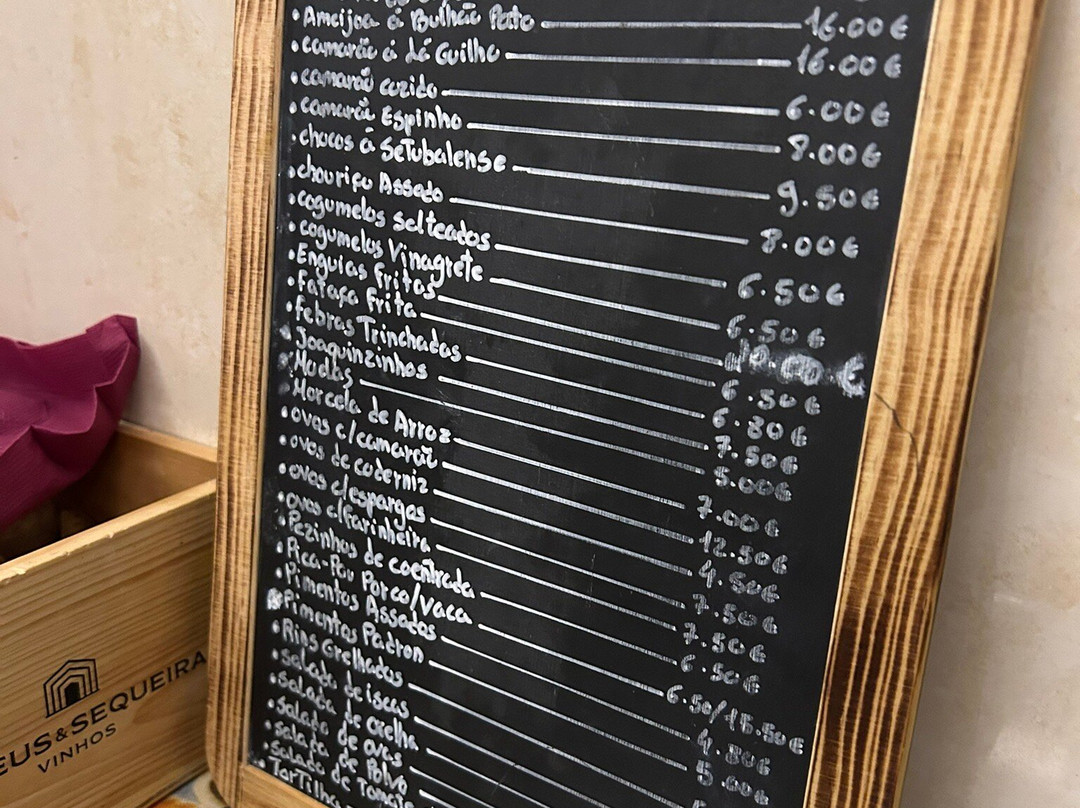 • Ameijoa á Bulhão Pato — 16.00€
• camarão á lá Guilho — 16.00€
• camarão cozido — 6.00€
• camarão Espinho — 8.00€
• chocos á Setubalense — 9.50€
• chouriço Assado — 8.00€
• cogumelos salteados — 6.50€
• cogumelos Vinagrete — 6.50€
• Enguias fritas — 10.00€
• Fataça frita — 6.50€
• febras Trinchadas — 6.80€
• Joaquinzinhos — 7.50€
• Moelas — 5.00€
• Morcela de Arroz — 7.00€
• ovos c/camarão — 12.50€
• ovos de codorniz — 4.50€
• ovos c/espargos — 7.50€
• ovos c/farinheira — 7.50€
• Pezinhos de coentrada — 6.50€
• Pica-Pau Porco/Vaca — 6.50/15.50€
• Pimentos Assados — 4.80€
• Pimentos Padron — 5.00€
• Rins Grelhados
• salada de iscas
• salada de orelha
• salada de ovas
• salada de Polvo
• Salada de Tomate
• Tortilha
EUS&SEQUEIRA
VINHOS